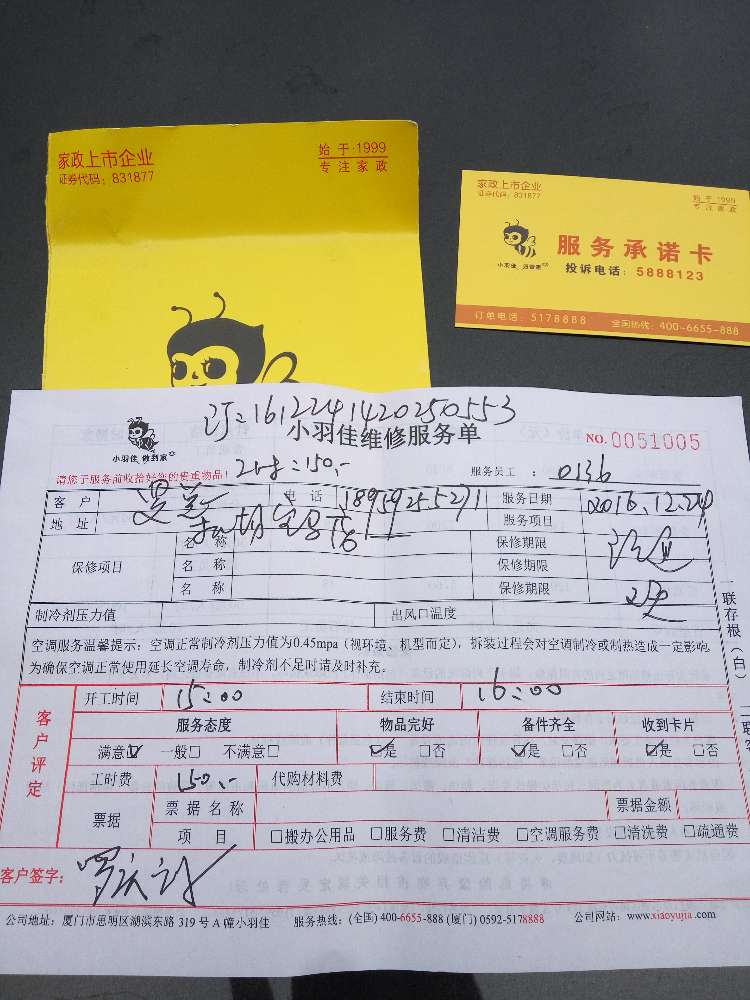 家政上市企业
证券代码：831877
始于·1999
专注家政
家政上市企业
证券代码：831877
始于·1999
专注家政
小羽佳
服务承诺卡
投诉电话：5888123
订单电话：5178888 全国热线：400-6655-888
订:1612241420250553
小羽佳 做到家
小羽佳维修服务单
NO.0051005
请您于服务前收拾好您的贵重物品！
150,-
服务员工： 0136
客户 电话 服务日期 2016.12.24
地址 服务项目
保修项目
名称 保修期限
名称 保修期限
名称 保修期限
制冷剂压力值 出风口温度
空调服务温馨提示：空调正常制冷剂压力值为0.45mpa（视环境、机型而定），拆装过程会对空调制冷或制热造成一定影响
为确保空调正常使用延长空调寿命，制冷剂不足时请及时补充。
一联存根（白）
客户评定
开工时间 15:00 结束时间 16:00
服务态度 物品完好 备件齐全 收到卡片
满意☑ 一般□ 不满意□ ☑是 □否 ☑是 □否 ☑是 □否
工时费 150.- 代购材料费
票据 票据名称 票据金额
项目 □搬办公用品 □服务费 □清洁费 □空调服务费 □清洗费 □疏通费
客户签字：
公司地址：厦门市思明区湖滨东路 319 号 A 幢小羽佳 服务热线：(全国) 400-6655-888 (厦门) 0592-5178888 公司网站：www.xiaoyujia.com